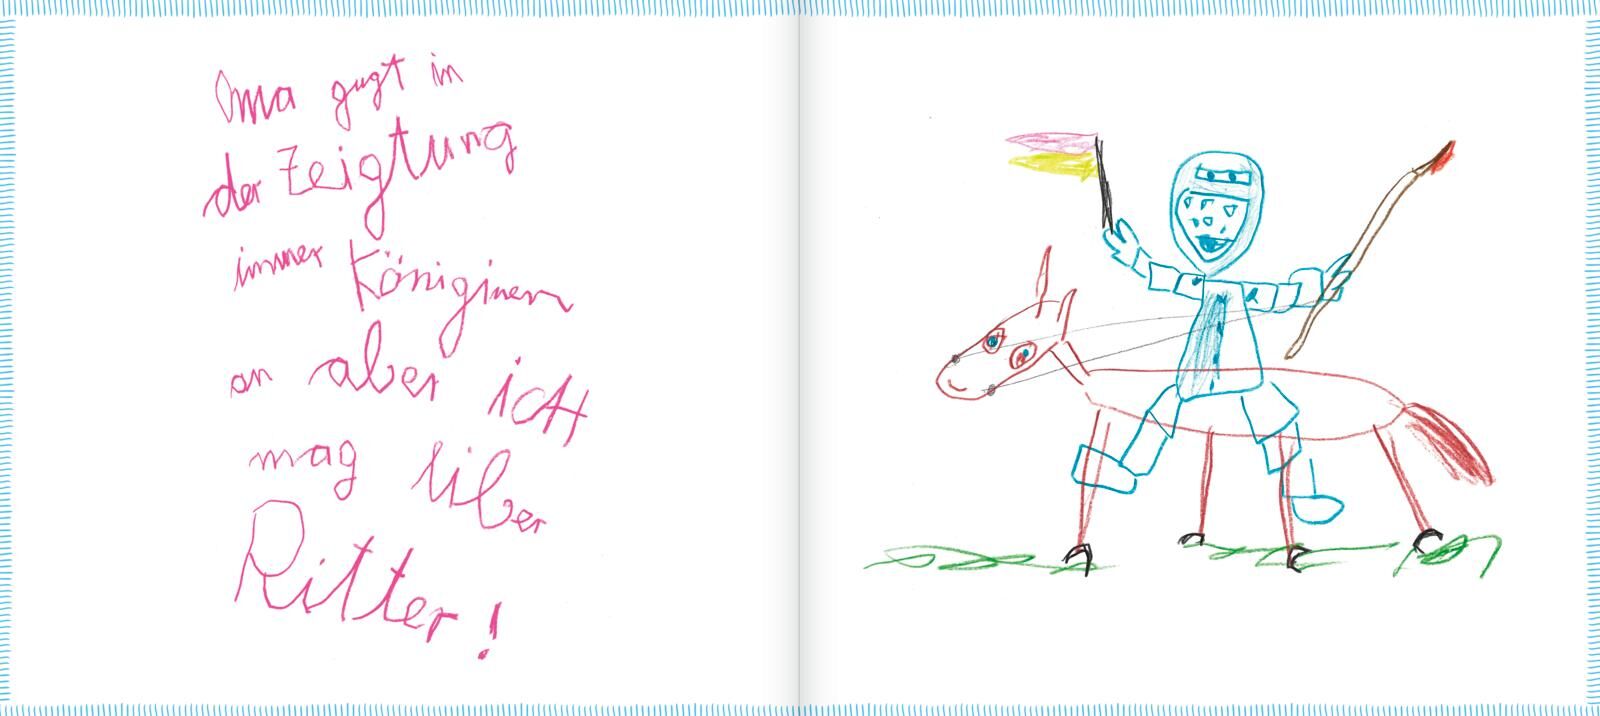 Oma gugt in
der Zeigtung
immer Königinen
an aber ich
mag liber
Ritter!